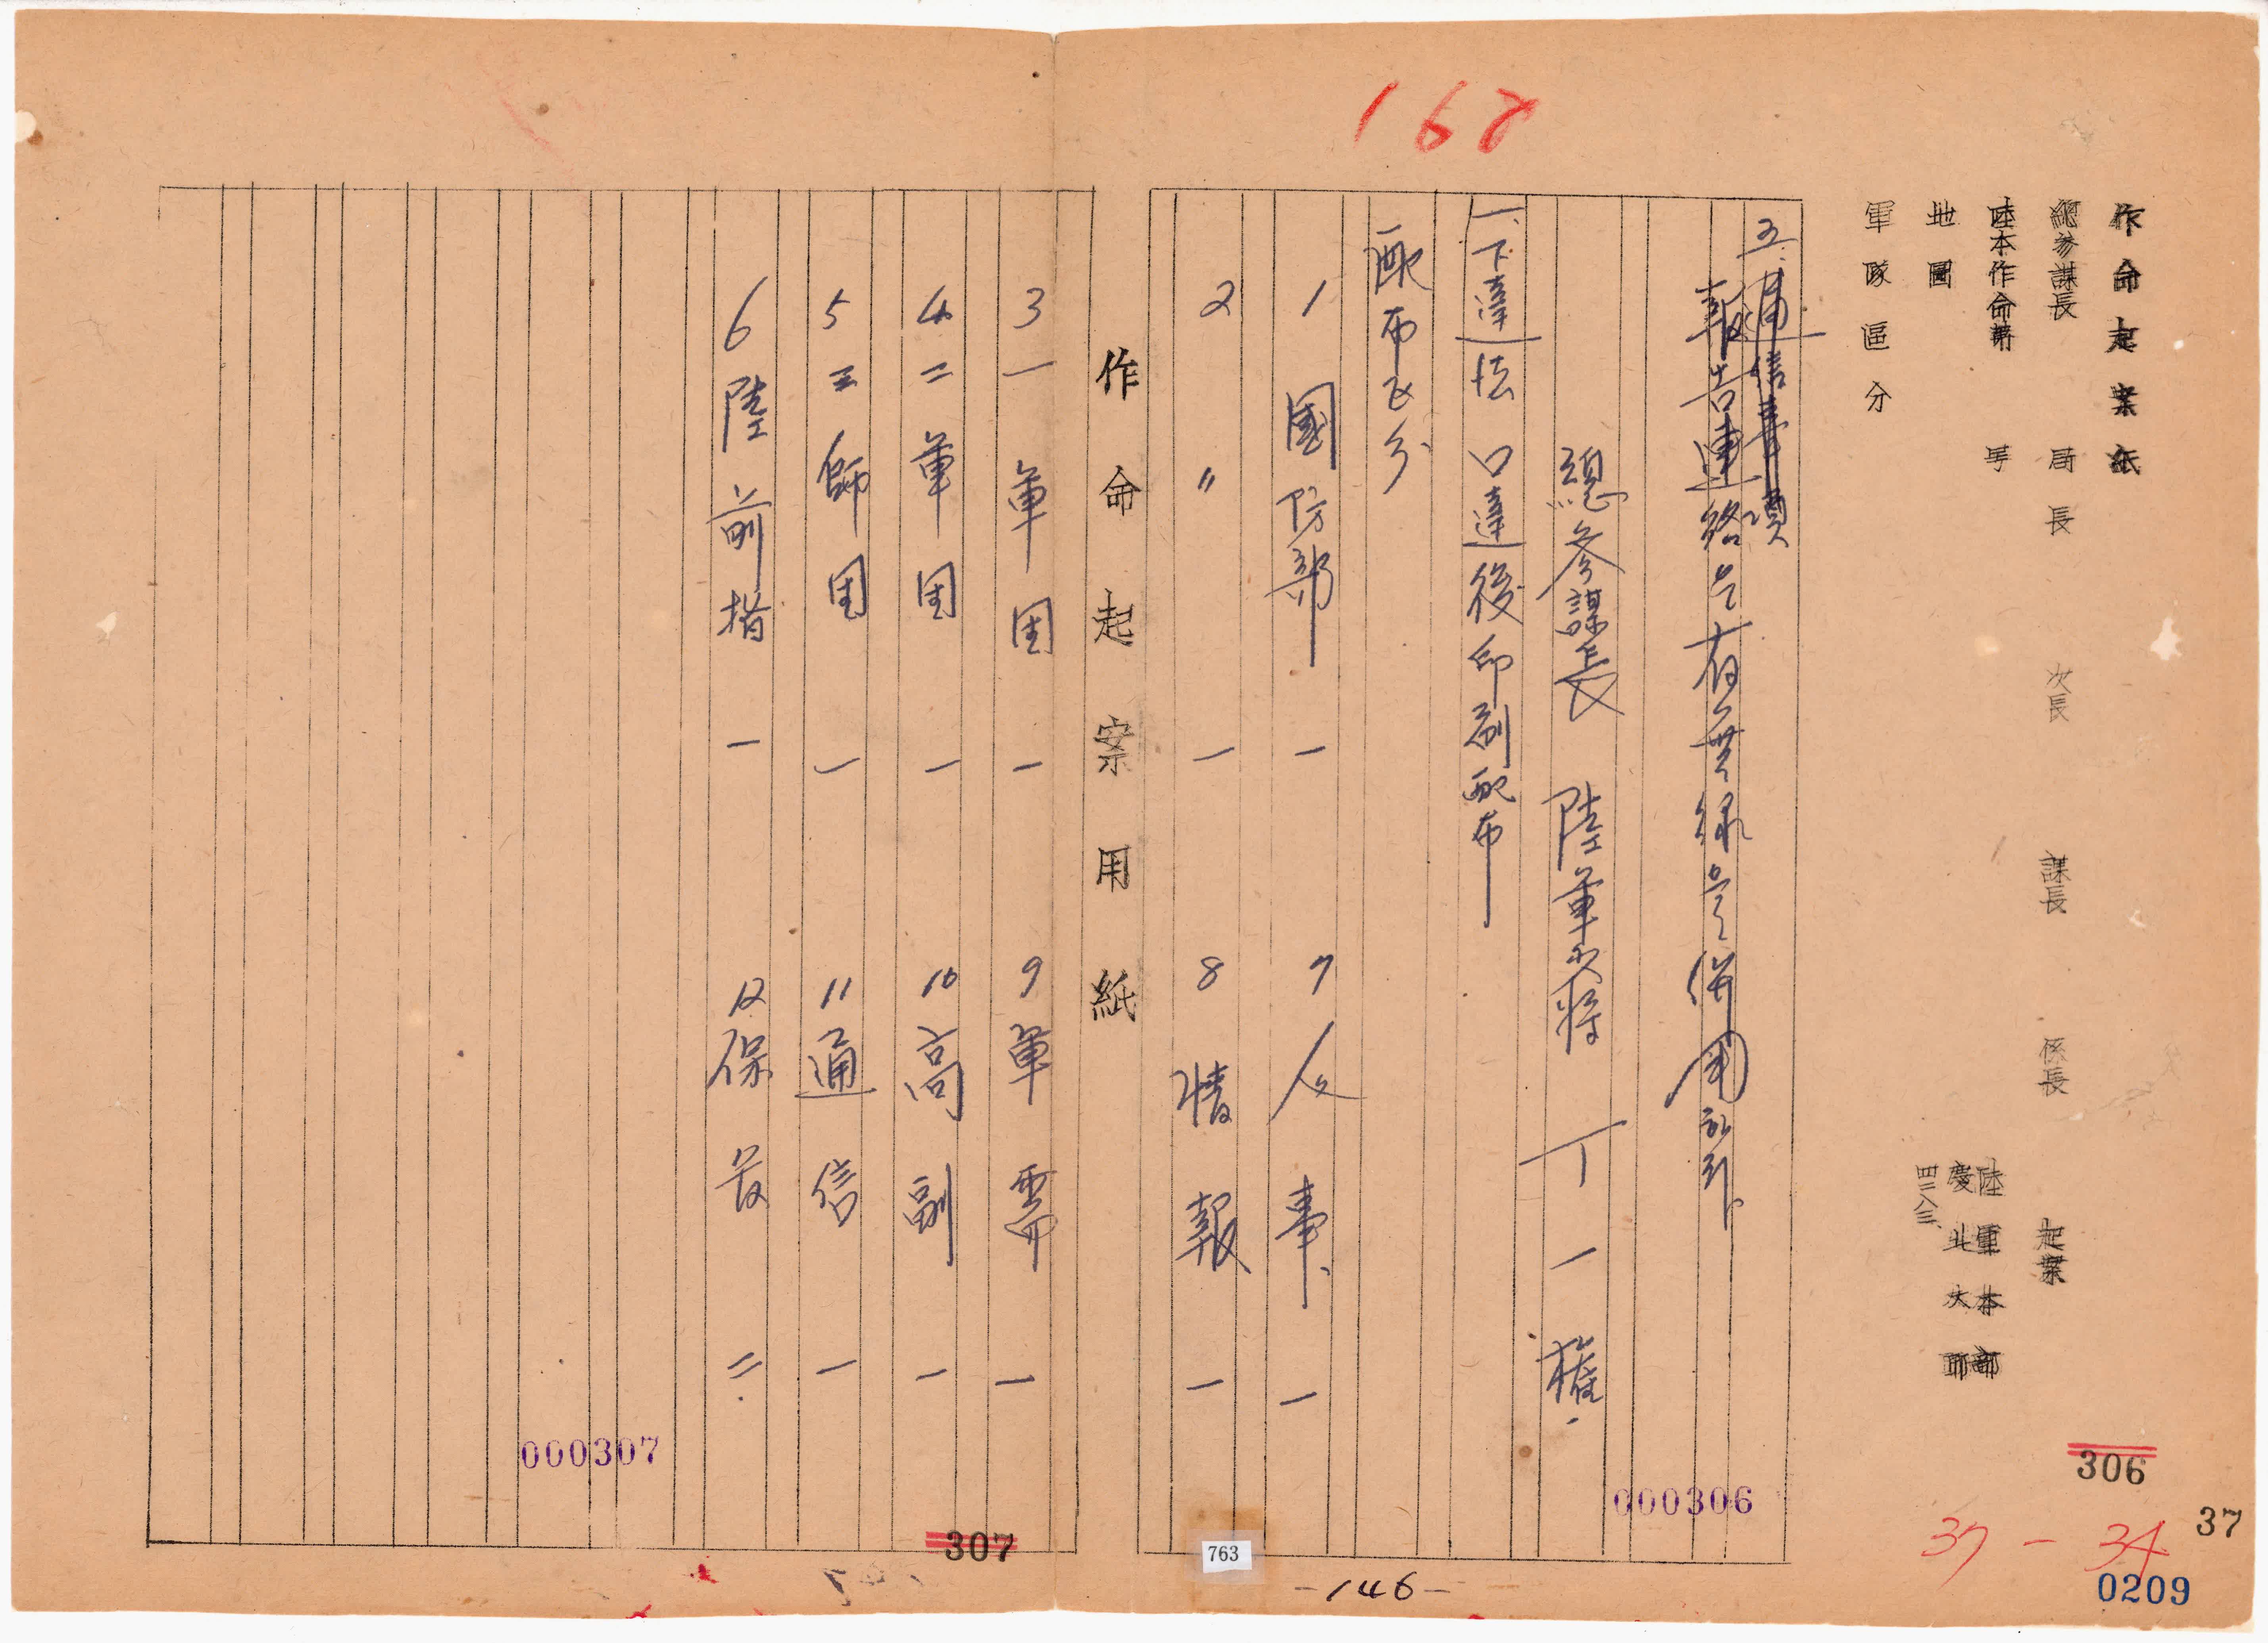 162
作命起案紙
總參謀長 局長 次長 課長 係長 起案
陸本作命第 号
地圖
軍隊區分
陸軍本部
慶北大邱
四二八三、
五. 通信事項
報告連絡은 有無線을 併用하라.
總參謀長 陸軍少將 丁一權
一、下達法 口達後印刷配布
配布區分
1 國防部 一
7 人事 一
2 〃 一
8 情報 一
作命起案用紙
3 一軍団 一
9 軍需 一
4 二軍団 一
10 高副 一
5 三師団 一
11 通信 一
6 陸前指 一
12 保存 二
000307
307
763
-146-
000306
306
37
37-34
0209